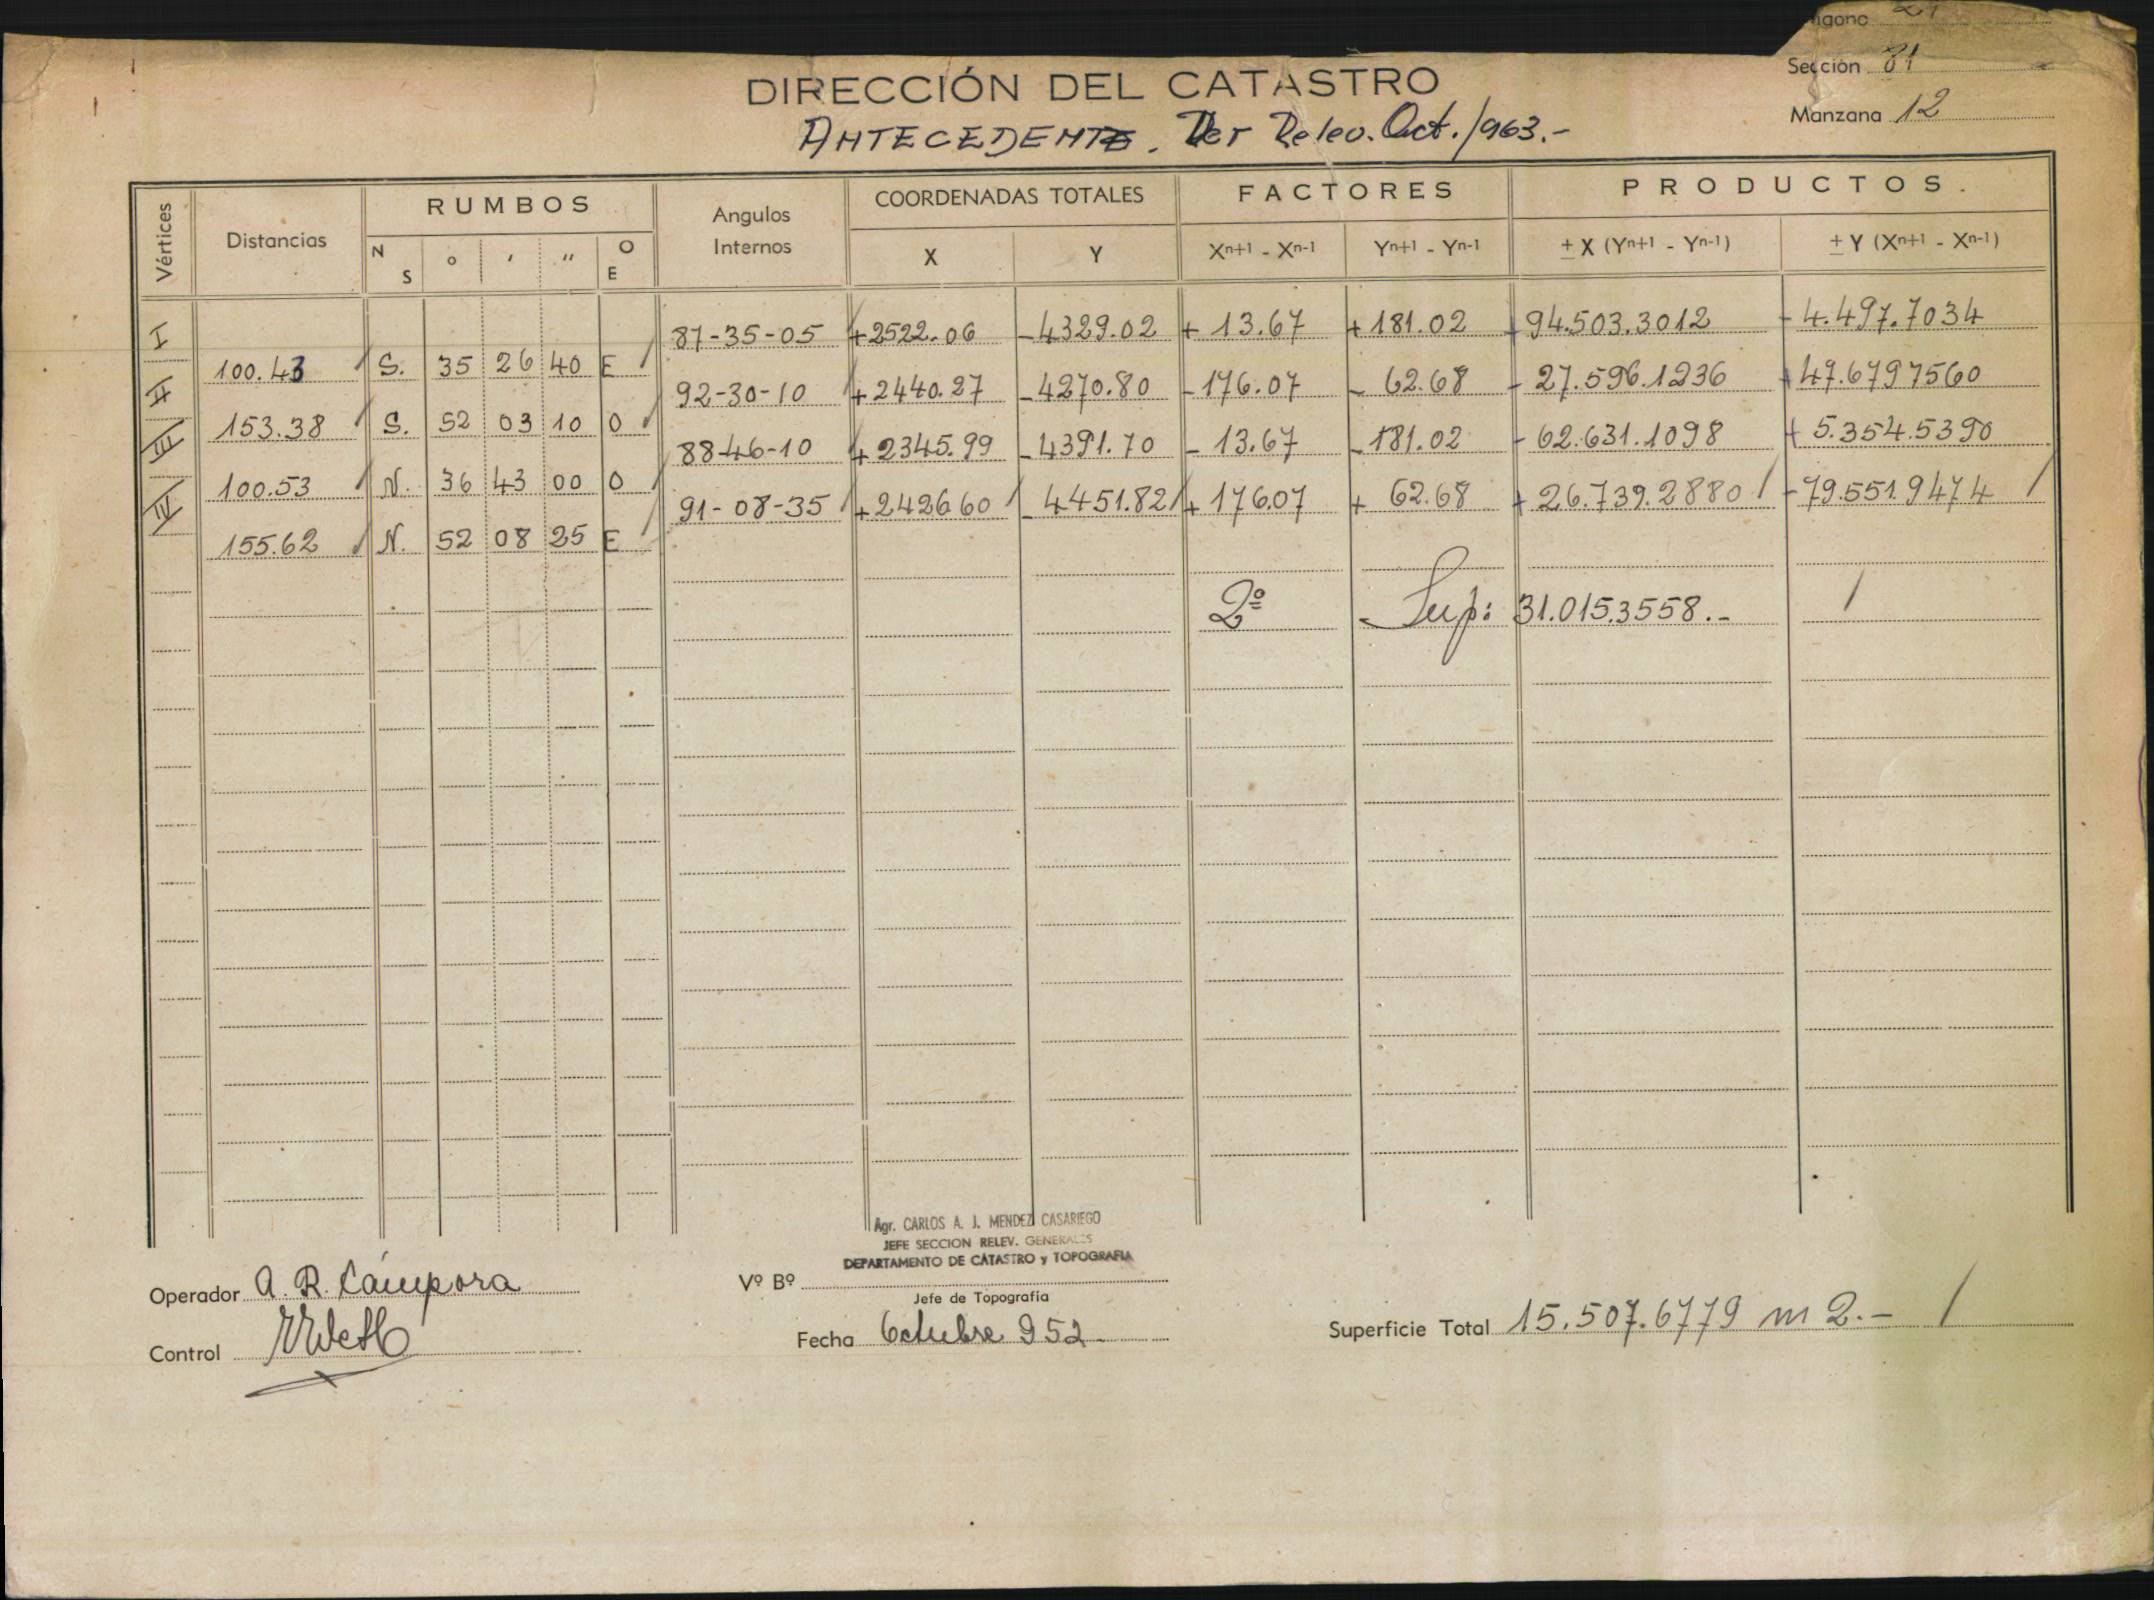 Sección 81
Manzana 12
DIRECCIÓN DEL CATASTRO
ANTECEDENTE. Ver Relev. Oct./963.-
Vértices Distancias RUMBOS Angulos Internos COORDENADAS TOTALES FACTORES PRODUCTOS.
N S ° ' " O E X Y Xⁿ⁺¹ - Xⁿ⁻¹ Yⁿ⁺¹ - Yⁿ⁻¹ ± X (Yⁿ⁺¹ - Yⁿ⁻¹) ± Y (Xⁿ⁺¹ - Xⁿ⁻¹)
I 87-35-05 +2522.06 -4329.02 + 13.67 +181.02 +94.503.3012 -4.497.7034
100.43 S. 35 26 40 E
II 92-30-10 +2440.27 -4270.80 -176.07 - 62.68 - 27.596.1236 +47.6797560
153.38 S. 52 03 10 O
III 88-46-10 +2345.99 -4391.70 - 13.67 -181.02 - 62.631.1098 + 5.354.5390
100.53 N. 36 43 00 O
IV 91-08-35 +2426.60 -4451.82 +176.07 + 62.68 + 26.739.2880 -79.551.9474
155.62 N. 52 08 25 E
2º Sup: 31.015.3558.-
Agr. CARLOS A. J. MENDEZ CASARIEGO
JEFE SECCION RELEV. GENERALES
DEPARTAMENTO DE CATASTRO y TOPOGRAFIA
Operador A. R. Cámpora
Vº Bº
Jefe de Topografía
Control
Fecha Octubre 952
Superficie Total 15.507.6779 m 2.-